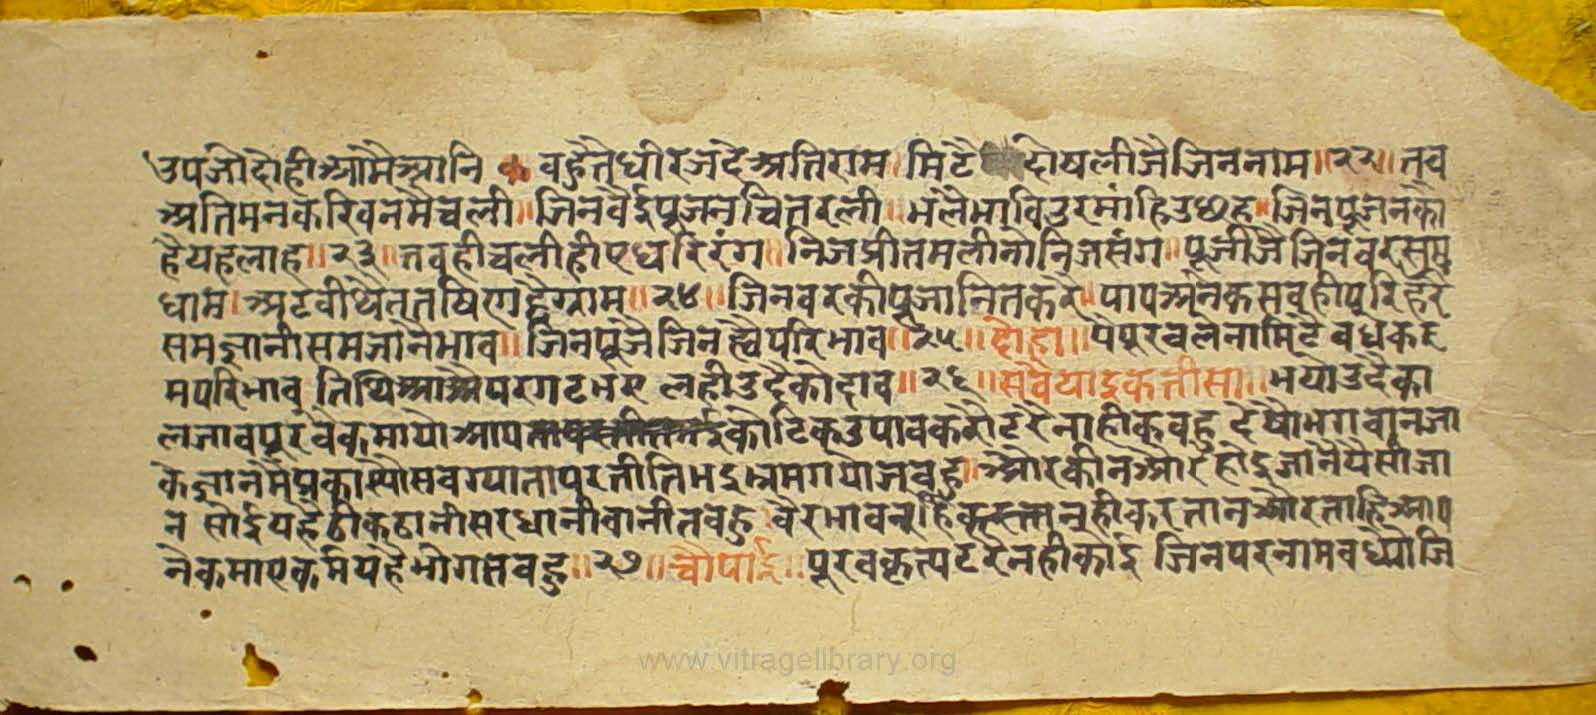 उपजौदौहीआमैआनि वहुतैधीरजदेअतिराम।मिटै दोषलीजैजिननाम॥२२॥तव
अतिमनकरिवनमैचली॥जिनवैईपूजनचितरली॥भलैभाविउरमांहिउछाह॥जिनपूजनकौ
हैयहलाह॥२३॥तवहीचलीहीएधरिरंग॥निजप्रीतमलीनोनिजसंग॥पूजीजैजिनवर
धाम।अटवीथै ॥२४॥जिनवरकीपूजानितकरै॥पापअनेकसवहीपरिहरै
समज्ञानीसमजानैभाव॥जिनपूजैजिनह्वैपरिभाव॥२५॥दोहा॥पैपूरवलेनामिटैवधेकर
मपरिभाव तिथिआऔपरगटभए लहीउदैकौदाव॥२६॥सवैयाइकतीसा॥भयोउदैका
लजावपूरवैकमायौआप कोटिकउपावकरौटरैनाहीकवहु देषौभगवानजा
केज्ञानमैप्रकास्यौसवग्याता भ्रमगयौजवहु॥औरकीनऔरहोइजानैयैसीजा
न सोईयहैठीकठानीसरधानीवानीतवहु।वैरभावन करतानऔरताहिआप
नैकमाएकर्मयहैभोगतवहु॥२७॥चौपाई॥पूरवकृत्यटरैनहीकोई जिनपरनामवध्यौजि
www.vitragelibrary.org